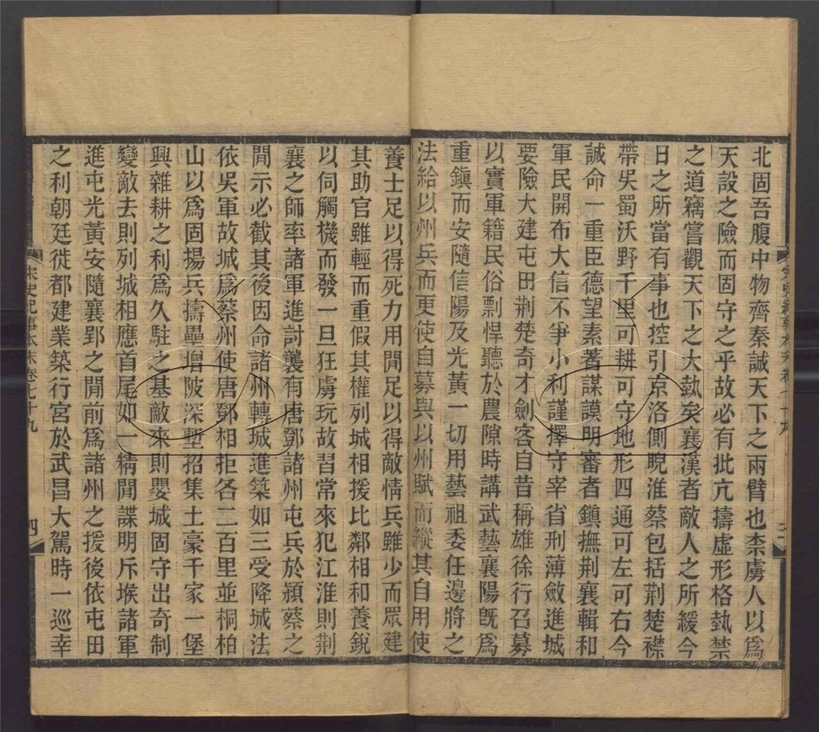 北固吾腹中物齊秦誠天下之兩臂也柰虜人以爲
天設之險而固守之乎故必有批亢擣虛形格埶禁
之道竊嘗觀天下之大埶矣襄漢者敵人之所緩今
日之所當有事也控引京洛側睨淮蔡包括荆楚襟
帶吳蜀沃野千里可耕可守地形四通可左可右今
誠命一重臣德望素著謀謨明審者鎭撫荆襄輯和
軍民開布大信不爭小利謹擇守宰省刑薄斂進城
要險大建屯田荆楚奇才劍客自昔稱雄徐行召募
以實軍籍民俗剽悍聽於農隙時講武藝襄陽旣爲
重鎭而安隨信陽及光黃一切用藝祖委任邊將之
法給以州兵而更使自募與以州賦而縱其自用使
養士足以得死力用閒足以得敵情兵雖少而眾建
其助官雖輕而重假其權列城相援比鄰相和養銳
以伺觸機而發一旦狂虜玩故習常來犯江淮則荆
襄之師率諸軍進討襲有唐鄧諸州屯兵於潁蔡之
閒示必截其後因命諸州轉城進築如三受降城法
依吳軍故城爲蔡州使唐鄧相拒各二百里並桐柏
山以爲固揚兵擣壘增陂深塹招集土豪千家一堡
興雜耕之利爲久駐之基敵來則嬰城固守出奇制
變敵去則列城相應首尾如一精閒諜明斥堠諸軍
進屯光黃安隨襄郢之閒前爲諸州之援後依屯田
之利朝廷徙都建業築行宮於武昌大駕時一巡幸
宋史紀事本末卷七十九
四